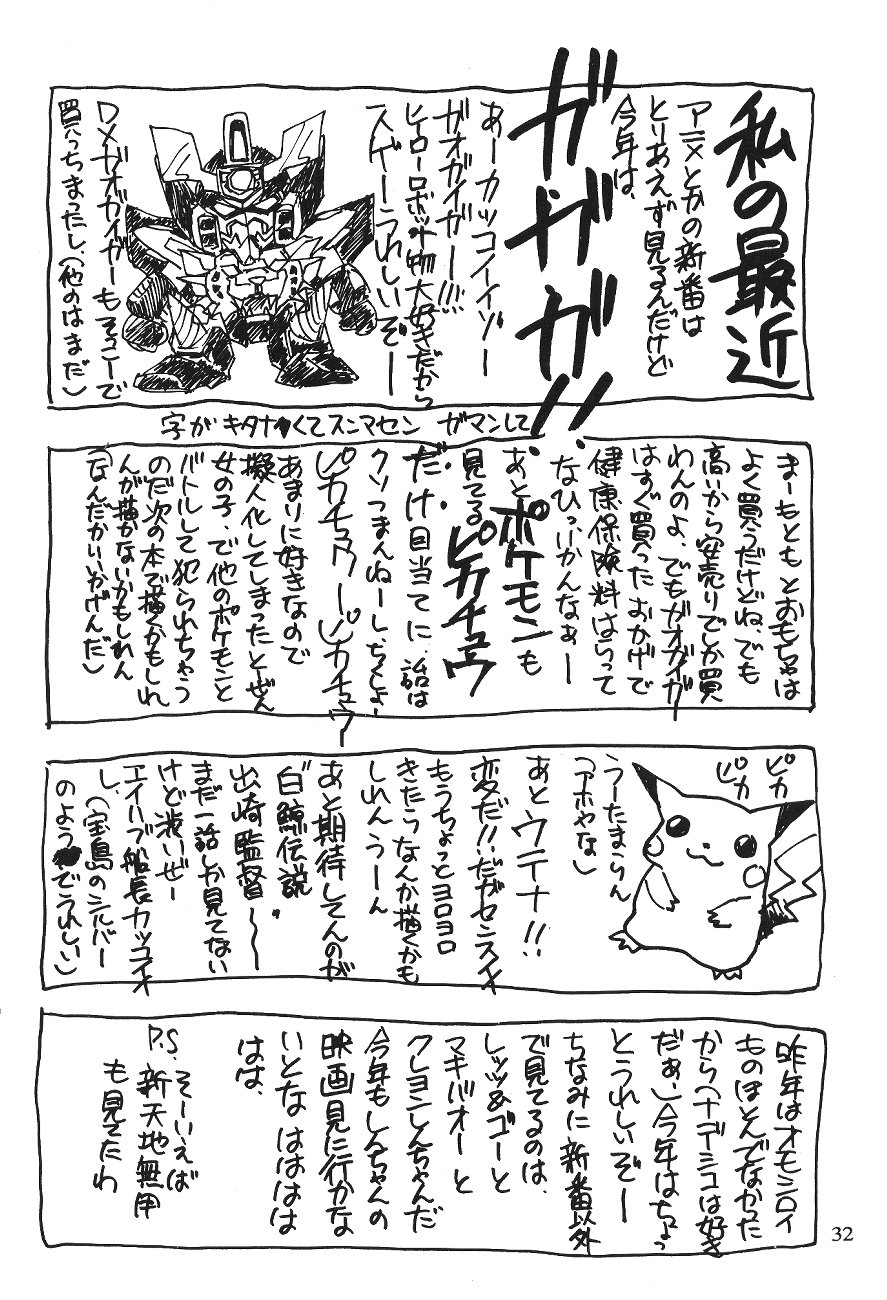 私の最近
アニメとかの新番は
とりあえず見るんだけど
今年は、
ガガガガ!!
あーカッコイイゾー
ガオガイガー!!!
ヒーローロボット物大好きだから
スゲーうれしいぞー
DXガオガイガーもソッコーで
買っちまったし、(他のはまだ)
字がキタナくてスンマセン ガマンして
まーもともとおもちゃは
よく買うだけどね、でも
高いから安売りでしか買
わんのよ、でもガオガイガー
はすぐ買った おかげで
健康保険料はらって
なひっいかんなぁー
あと、ポケモンも
見てる ピカチュウ
だけ目当てに、話は
クソつまんねーし、ちくしょー
ピカチュウーピカチュウー
あまりに好きなので
擬人化してしまったとぜん
女の子、で他のポケモンと
バトルして犯られちゃう
のだ次の本で描くかもしれ
んが描かないかもしれん
(なんだかいいかげんだ)
ピカ
ピカ
うーたまらん
(アホやな)
あとウテナ!!
変だ!!だがセンスイイ
もうちょっとヨロヨロ
きたらなんか描くかも
しれんうーん
あと期待してんのが
白鯨伝説"
出崎監督〜
まだ一話しか見てない
けど渋いぜー
エイハブ船長カッコイイ
し、(宝島のシルバー
のようでうれしい)
昨年はオモシロイ
ものほとんでなかった
から(ナデシコは好き
だぁ)今年はちょっ
とうれしいぞー
ちなみに新番以外
で見てるのは、
レッツ&ゴーと
マキバオーと
クレヨンしんちゃんだ
今年もしんちゃんの
映画見に行かな
いとな はははは
はは、
P.S. そーいえば
新天地無用
も見てたわ
32